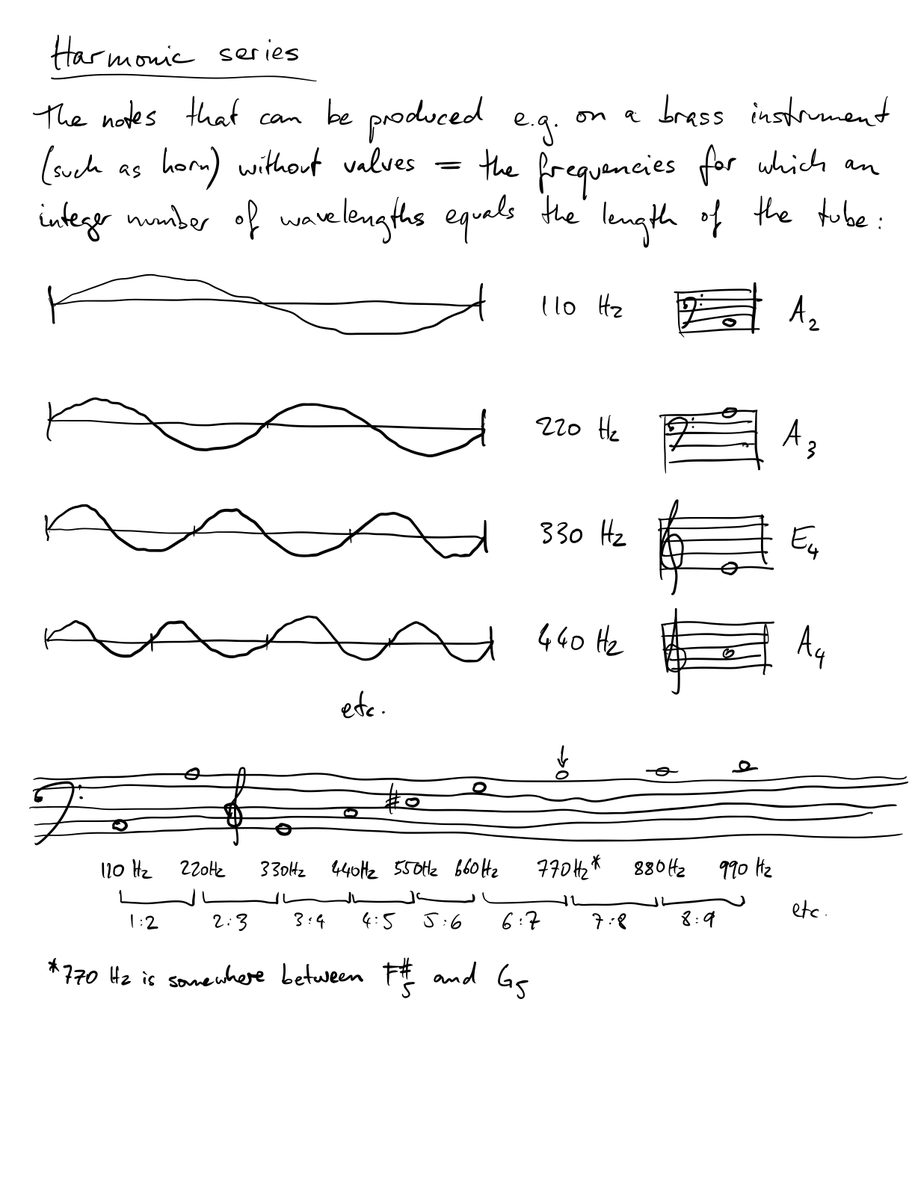 Harmonic series
The notes that can be produced e.g. on a brass instrument
(such as horn) without valves = the frequencies for which an
integer number of wavelengths equals the length of the tube:
110 Hz A2
220 Hz A3
330 Hz E4
440 Hz A4
etc.
110 Hz 220Hz 330Hz 440Hz 550Hz 660Hz 770Hz* 880Hz 990 Hz
1:2 2:3 3:4 4:5 5:6 6:7 7:8 8:9 etc.
*770 Hz is somewhere between F#5 and G5